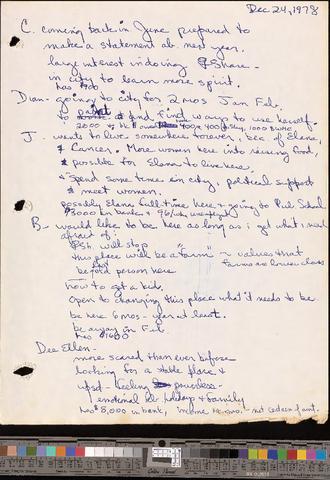 Dec 24, 1978
C. coming back in June prepared to
make a statement ab. next year.
large interest in doing $ share -
in city to learn more spirit.
has $700
Dian - going to city for 2 mos Jan Feb.
to paint & find ways to use herself.
2000
J. - wants to live somewhere forever, bec of Elana,
& Cancer. More women here into raising food,
& possible for Elana to live here.
& Spend some time in city, political support
& meet women.
possibly Elana full-time here & going to Pub School.
$3000 in bank &
B - would like to be here as long as i get what i need
afraid of:
$sh. will stop
this place will be a "farm" ~ values that
farms are lower class
be fold person here
how to get a kid.
open to changing this place what'd need to be
be here 6 mos - year at least.
be away in Feb.
has $1600
Dee Ellen -
more scared than ever before
looking for a stable place &
upsd - feeling powerless -
emotional ab. holidays & family
has $8,000 in bank, income